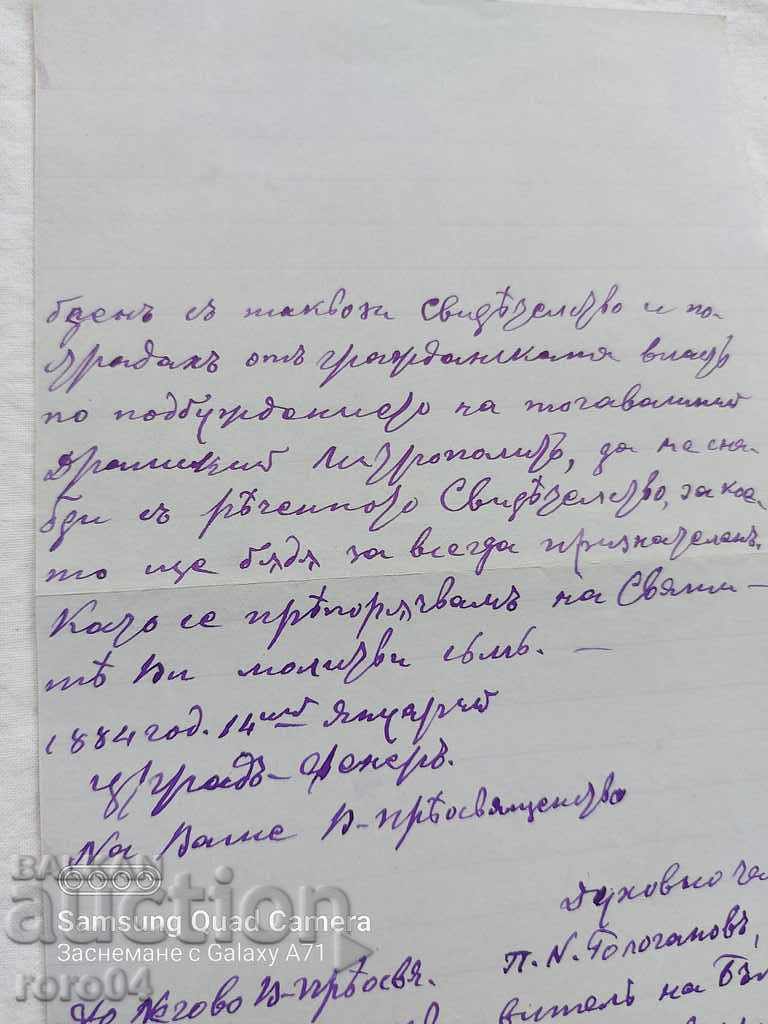 бденъ съ таквози Свидѣтелство и по-
страдахъ отъ гражданската власть
по подбужданието на тогавашния
Драмский Митрополитъ, да ме сна-
бди съ рѣченното Свидѣтелство, за кое-
то ще бѫдѫ за всегда признателенъ.
Като се прѣпорѫчвамъ на Святи-
тѣ Ви молитви съмъ. —
1884 год. 14ий януарий
Цѕградъ – Фенеръ.
На Ваше В-прѣосвященство
Духовно че
До Негово В-прѣосвя. П. И. Гологановъ,
вителъ на Бъл
БАЛКАН
auction
Samsung Quad Camera
Заснемане с Galaxy A71
roro04